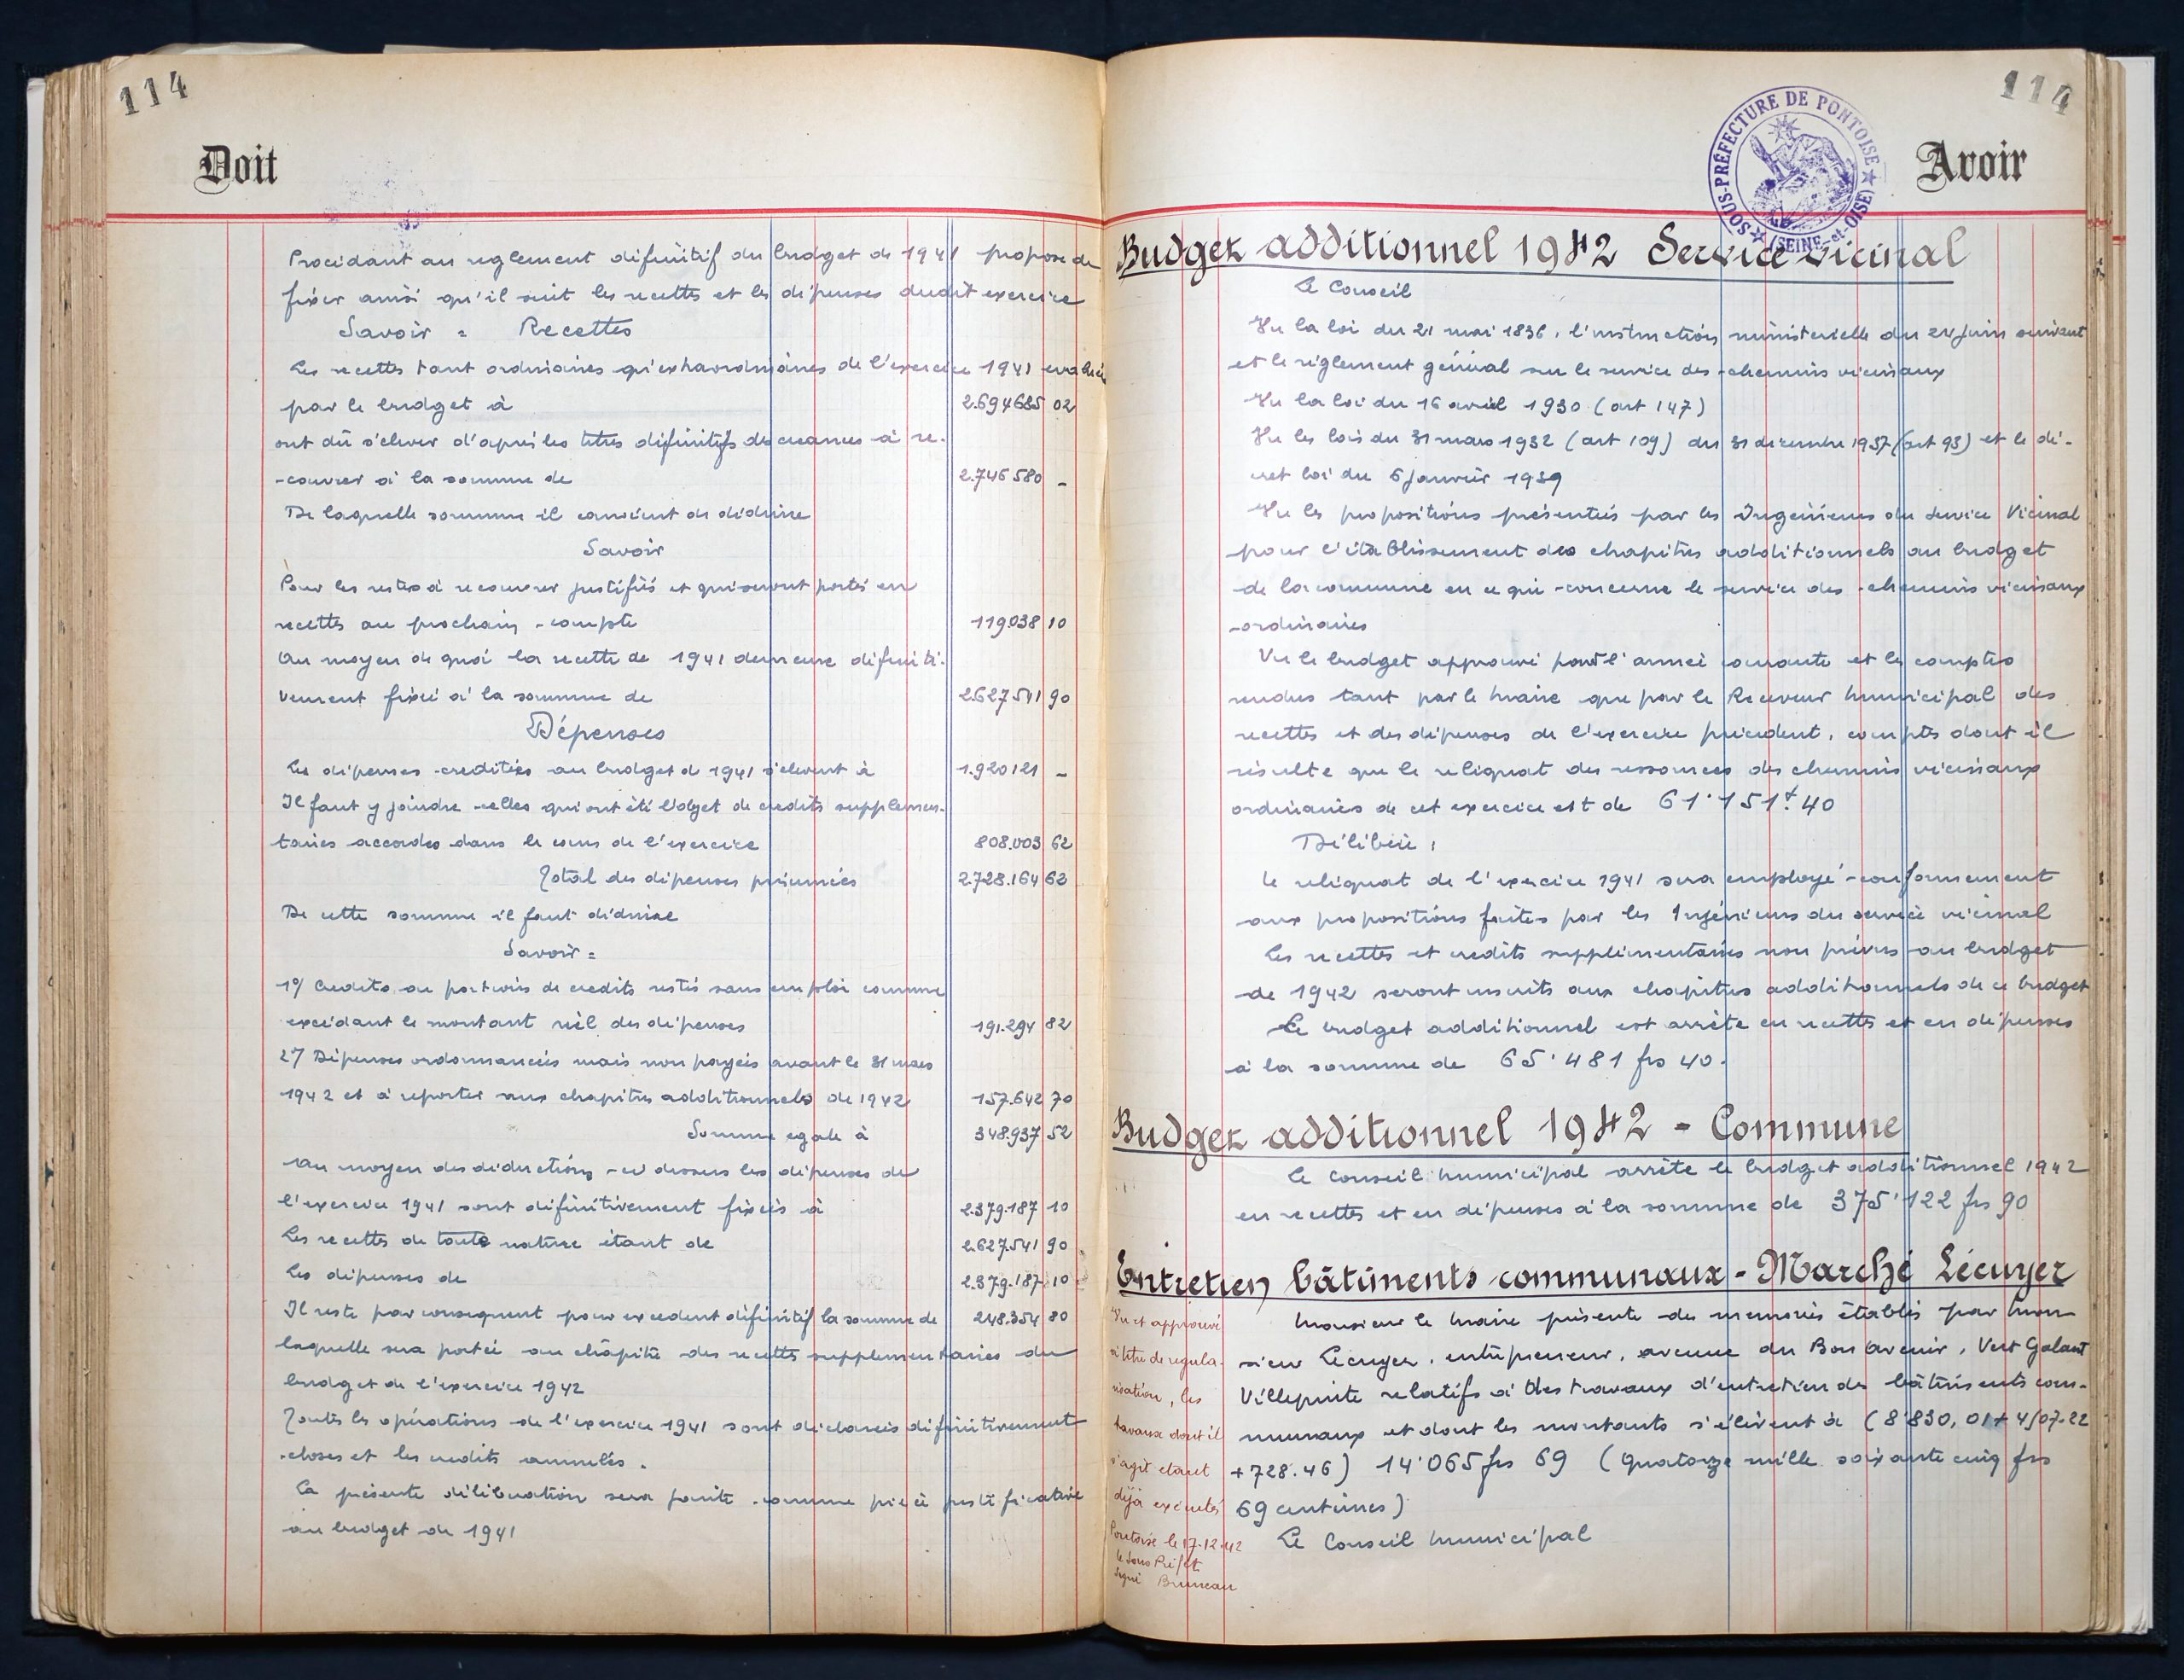 114
Doit
Procédant au reglement définitif du budget de 1941 propose de
fixer ainsi qu'il suit les recettes et les dépenses dudit exercice
Savoir = Recettes
Les recettes tant ordinaires qu'extraordinaires de l'exercice 1941 evaluées
par le budget à 2.694685 02
ont dû s'elever d'après les titres définitifs des creances à re-
-couvrer à la somme de 2.746580 -
De laquelle somme il convient de déduire
Savoir
Pour les restes à recouvrer justifiés et qui seront portés en
recettes au prochain compte 119.038 10
Au moyen de quoi la recette de 1941 demeure définiti-
vement fixée à la somme de 2.627.541 90
Dépenses
Les dépenses creditées au budget de 1941 s'elevent à 1.920121 -
Il faut y joindre celles qui ont été l'objet de credits supplemen-
taires accordes dans le cours de l'exercice 808.003 62
Total des dépenses présumées 2.728.164 62
De cette somme il faut déduire
Savoir =
1°/ Credits ou portions de credits restés sans emploi comme
excédant le montant réel des dépenses 191.294 82
2°/ Dépenses ordonnancées mais non payées avant le 31 mars
1942 et à reporter aux chapitres additionnels de 1942 157.642 70
Somme egale à 348.937 52
Au moyen des déductions ci dessus les dépenses de
l'exercice 1941 sont définitivement fixées à 2.379.187 10
Les recettes de toute nature étant de 2.627.541 90
Les dépenses de 2.379.187 10
Il reste par consequent pour excedent définitif la somme de 248.354 80
laquelle sera portée au chapitre des recettes supplementaires du
budget de l'exercice 1942
Toutes les opérations de l'exercice 1941 sont déclarées définitivement
closes et les credits annulés.
La présente délibération sera jointe comme pièce justificative
au budget de 1941
114
SOUS-PRÉFECTURE DE PONTOISE
(SEINE-et-OISE)
Avoir
Budget additionnel 1942 Service vicinal
Le Conseil
Vu la loi du 21 mai 1836, l'instruction ministerielle du 24 juin suivant
et le règlement général sur le service des chemins vicinaux
Vu la loi du 16 avril 1930 (art 147)
Vu les lois du 31 mars 1932 (art 109) du 31 decembre 1937 (art 93) et le dé-
cret loi du 6 janvier 1939
Vu les propositions présentées par les Ingénieurs du Service Vicinal
pour l'établissement des chapitres additionnels au budget
de la commune en ce qui concerne le service des chemins vicinaux
ordinaires
Vu le budget approuvé pour l'année courante et les comptes
rendus tant par le Maire que par le Receveur Municipal des
recettes et des dépenses de l'exercice précedent, comptes dont il
résulte que le reliquat des ressources des chemins vicinaux
ordinaires de cet exercice est de 61'151f.40
Délibère :
Le reliquat de l'exercice 1941 sera employé conformement
aux propositions faites par les Ingénieurs du service vicinal
Les recettes et credits supplémentaires non prévus au budget
de 1942 seront inscrits aux chapitres additionnels de ce budget
Le budget additionnel est arrête en recettes et en dépenses
à la somme de 65'481 frs 40.
Budget additionnel 1942 - Commune
Le Conseil Municipal arrête le budget additionnel 1942
en recettes et en dépenses à la somme de 375'122 frs 90
Entretien bâtiments communaux - Marché Lécuyer
Monsieur le Maire présente des memoires établis par Mon-
sieur Lécuyer, entrepreneur, avenue du Bon avenir, Vert Galant
Villepinte relatifs à des travaux d'entretien des bâtiments com-
munaux et dont les montants s'élèvent à (8'830,01 + 4507.22
+ 728.46) 14'065 frs 69 (quatorze mille soixante cinq frs
69 centimes)
Le Conseil Municipal
Vu et approuvé
à titre de regula-
risation, les
travaux dont il
s'agit etant
déjà exécutés
Pontoise le 17-12-42
le Sous Préfet
Signé Bruneau